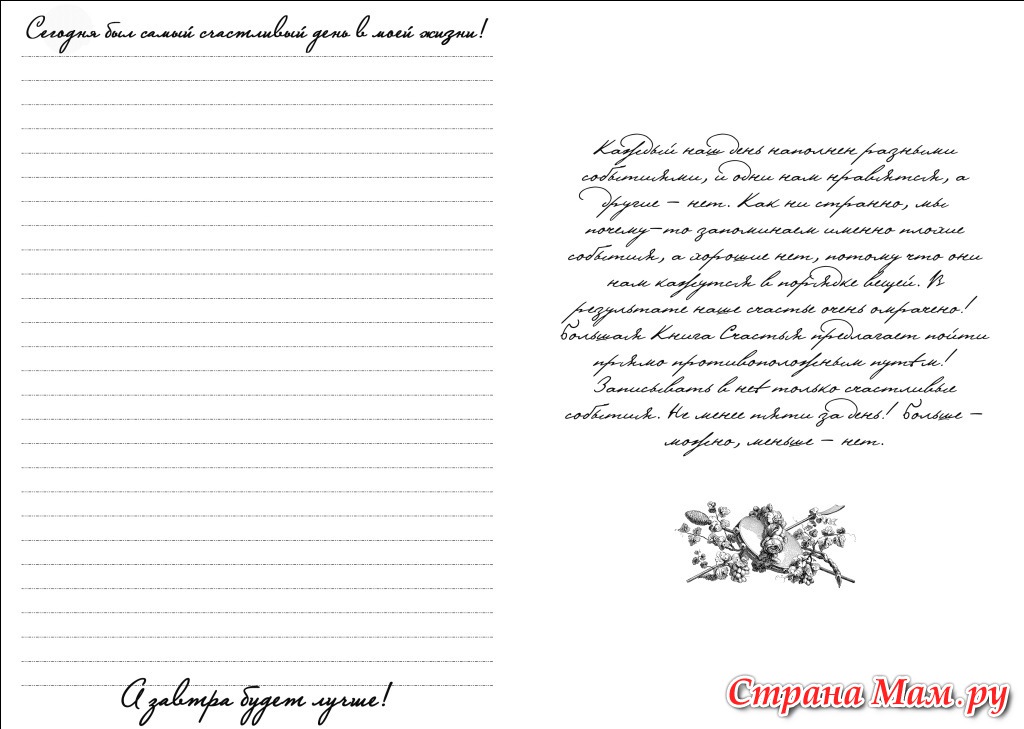 Сегодня был самый счастливый день в моей жизни!
А завтра будет лучше!
Каждый наш день наполнен разными
событиями, и одни нам нравятся, а
другие – нет. Как ни странно, мы
почему-то запоминаем именно плохие
события, а хорошие нет, потому что они
нам кажутся в порядке вещей. В
результате наше счастье очень омрачено!
Большая Книга Счастья предлагает пойти
прямо противоположным путём!
Записывать в неё только счастливые
события. Не менее пяти за день! Больше –
можно, меньше – нет.
Страна Мам.ру